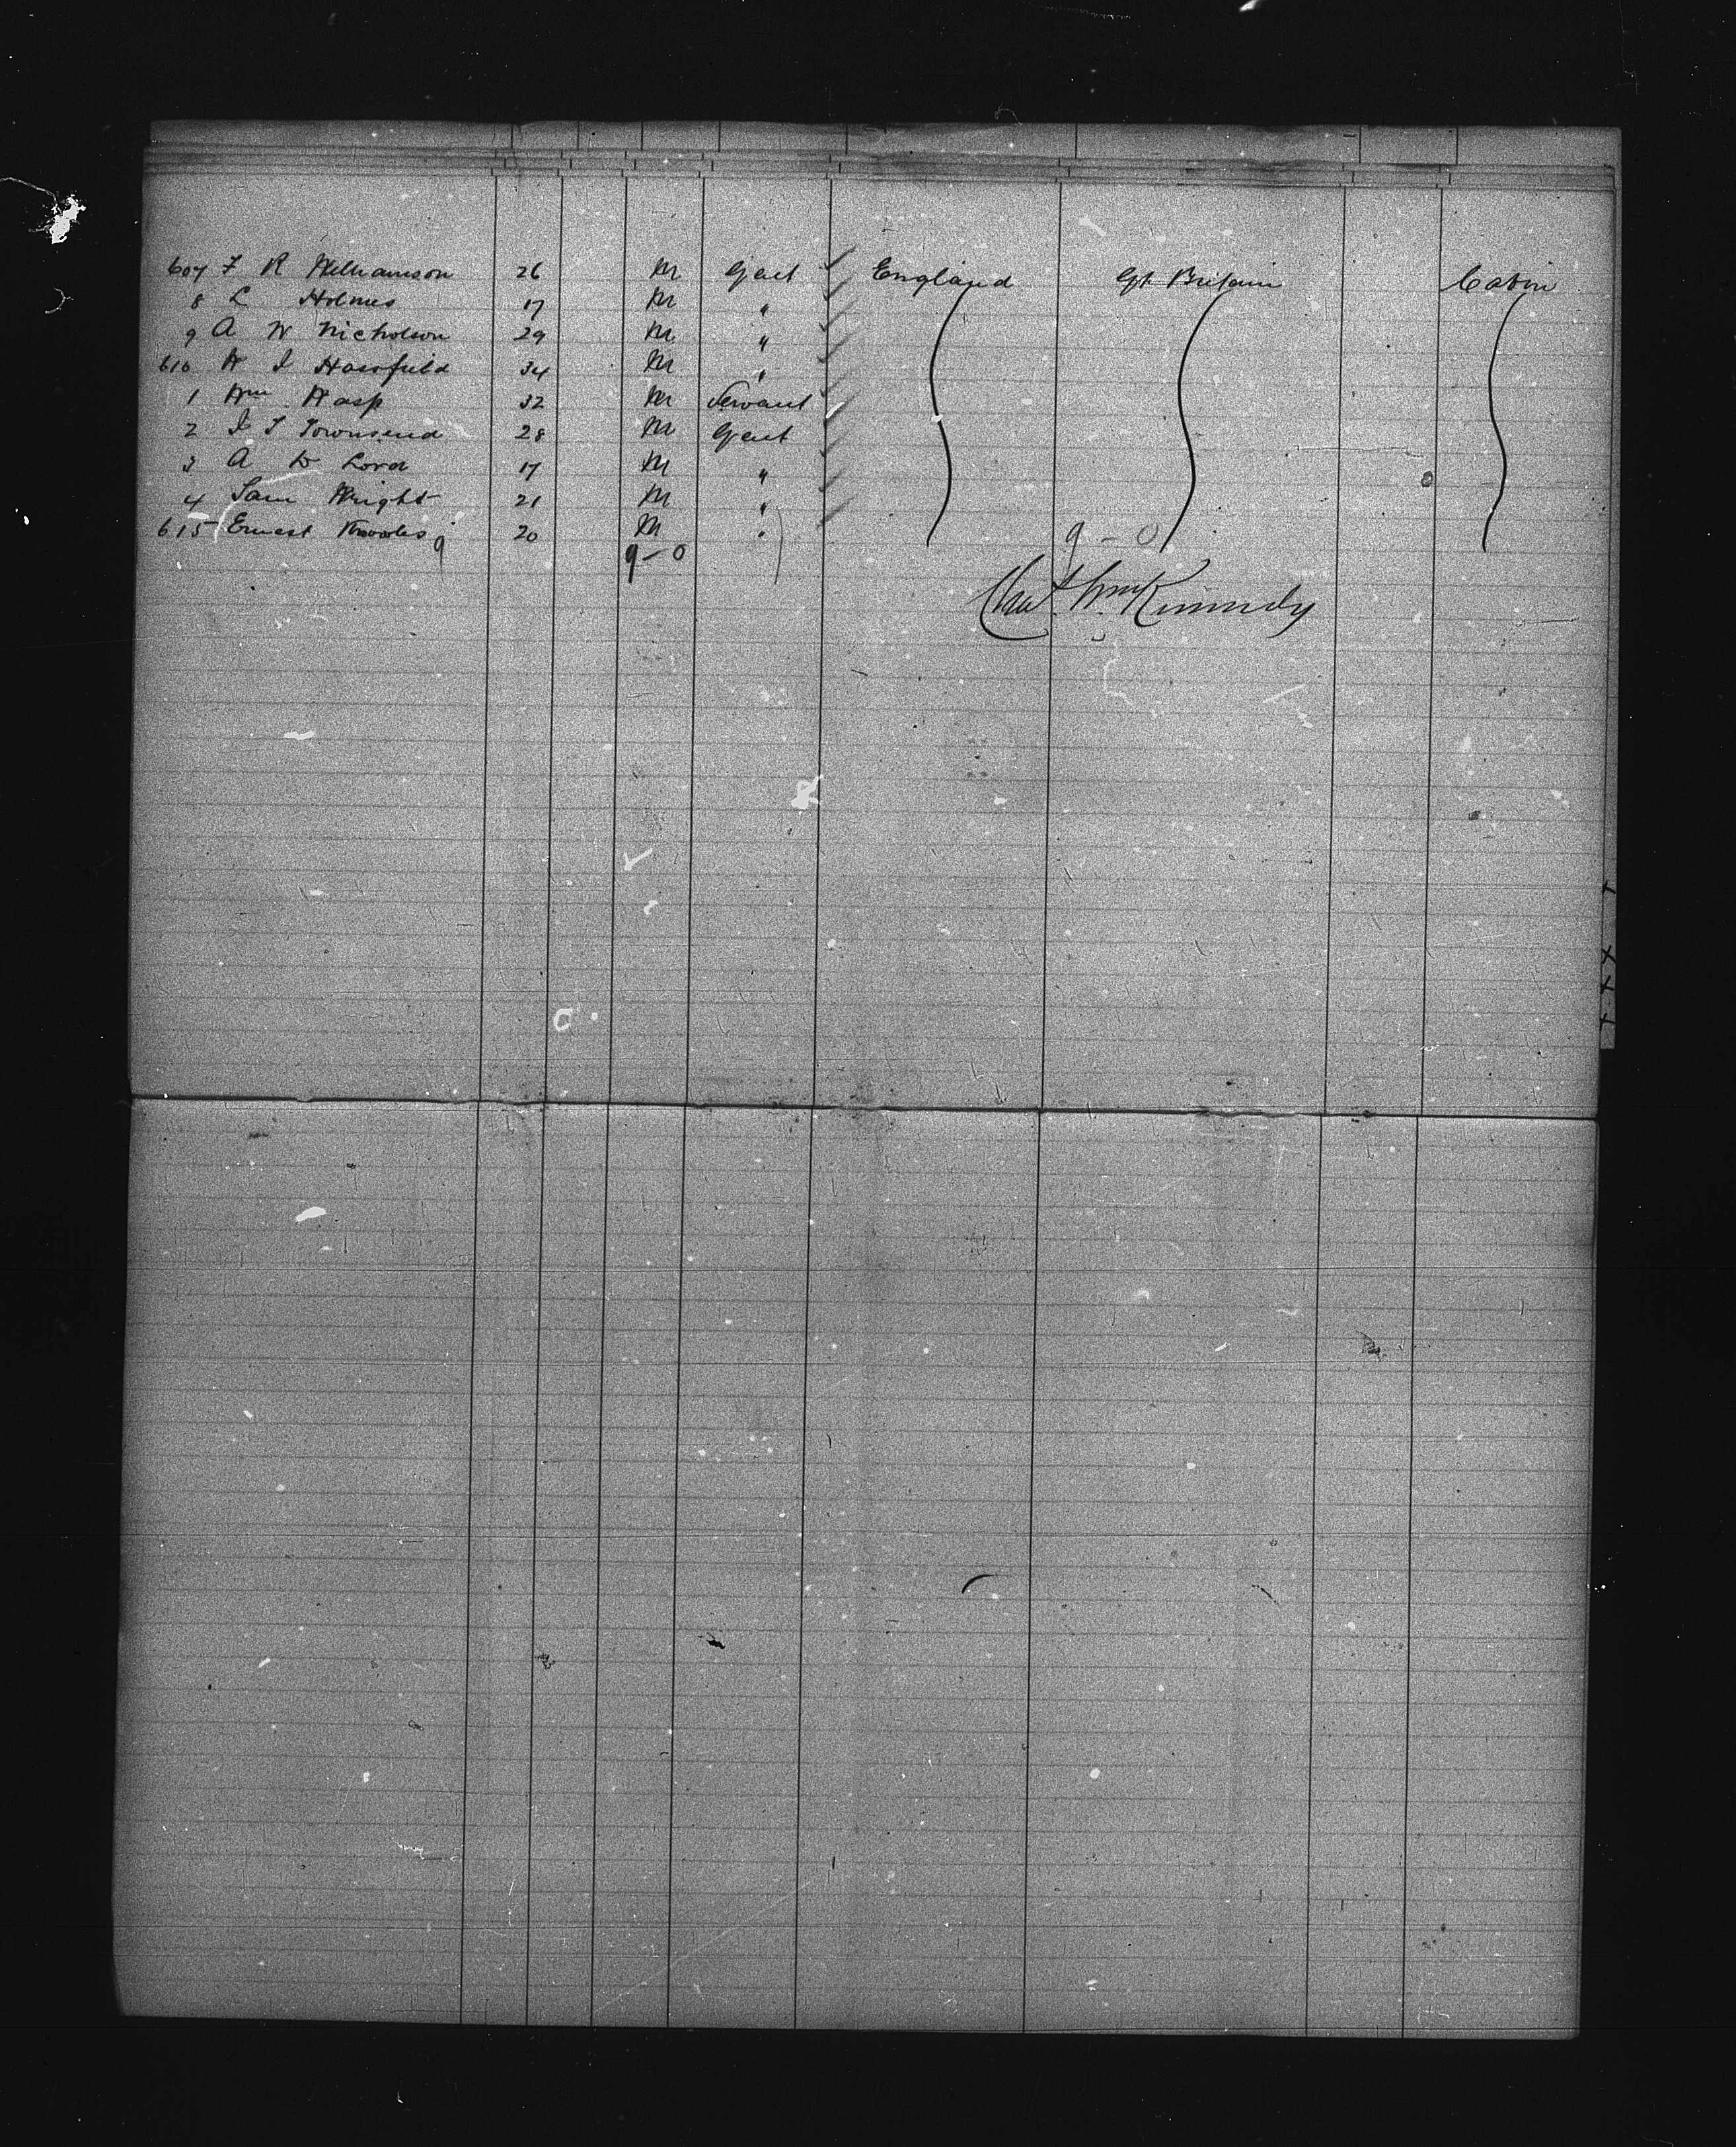 607 F R Williamson 26 M Gent England Gt. Britain Cabin
8 L Holmes 17 M "
9 A W Nicholson 29 M "
610 W J 34 M "
1 Wm Wasp 32 M Servant
2 J T Townsend 28 M Gent
3 A D Lord 17 M "
4 Sam Wright 21 M "
615 Ernest 9 20 M " 9 - 0
9 - 0
Chas. Wm Kennedy